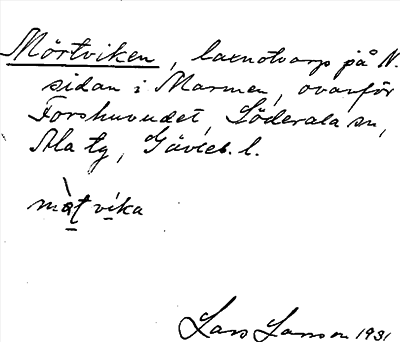 Mörtviken, laxnotvarp på N.
sidan i Marmen, ovanför
Forshuvudet, Söderala sn,
Ala tg, Gävleb. l.
màt víka
Lars Larsson 1931